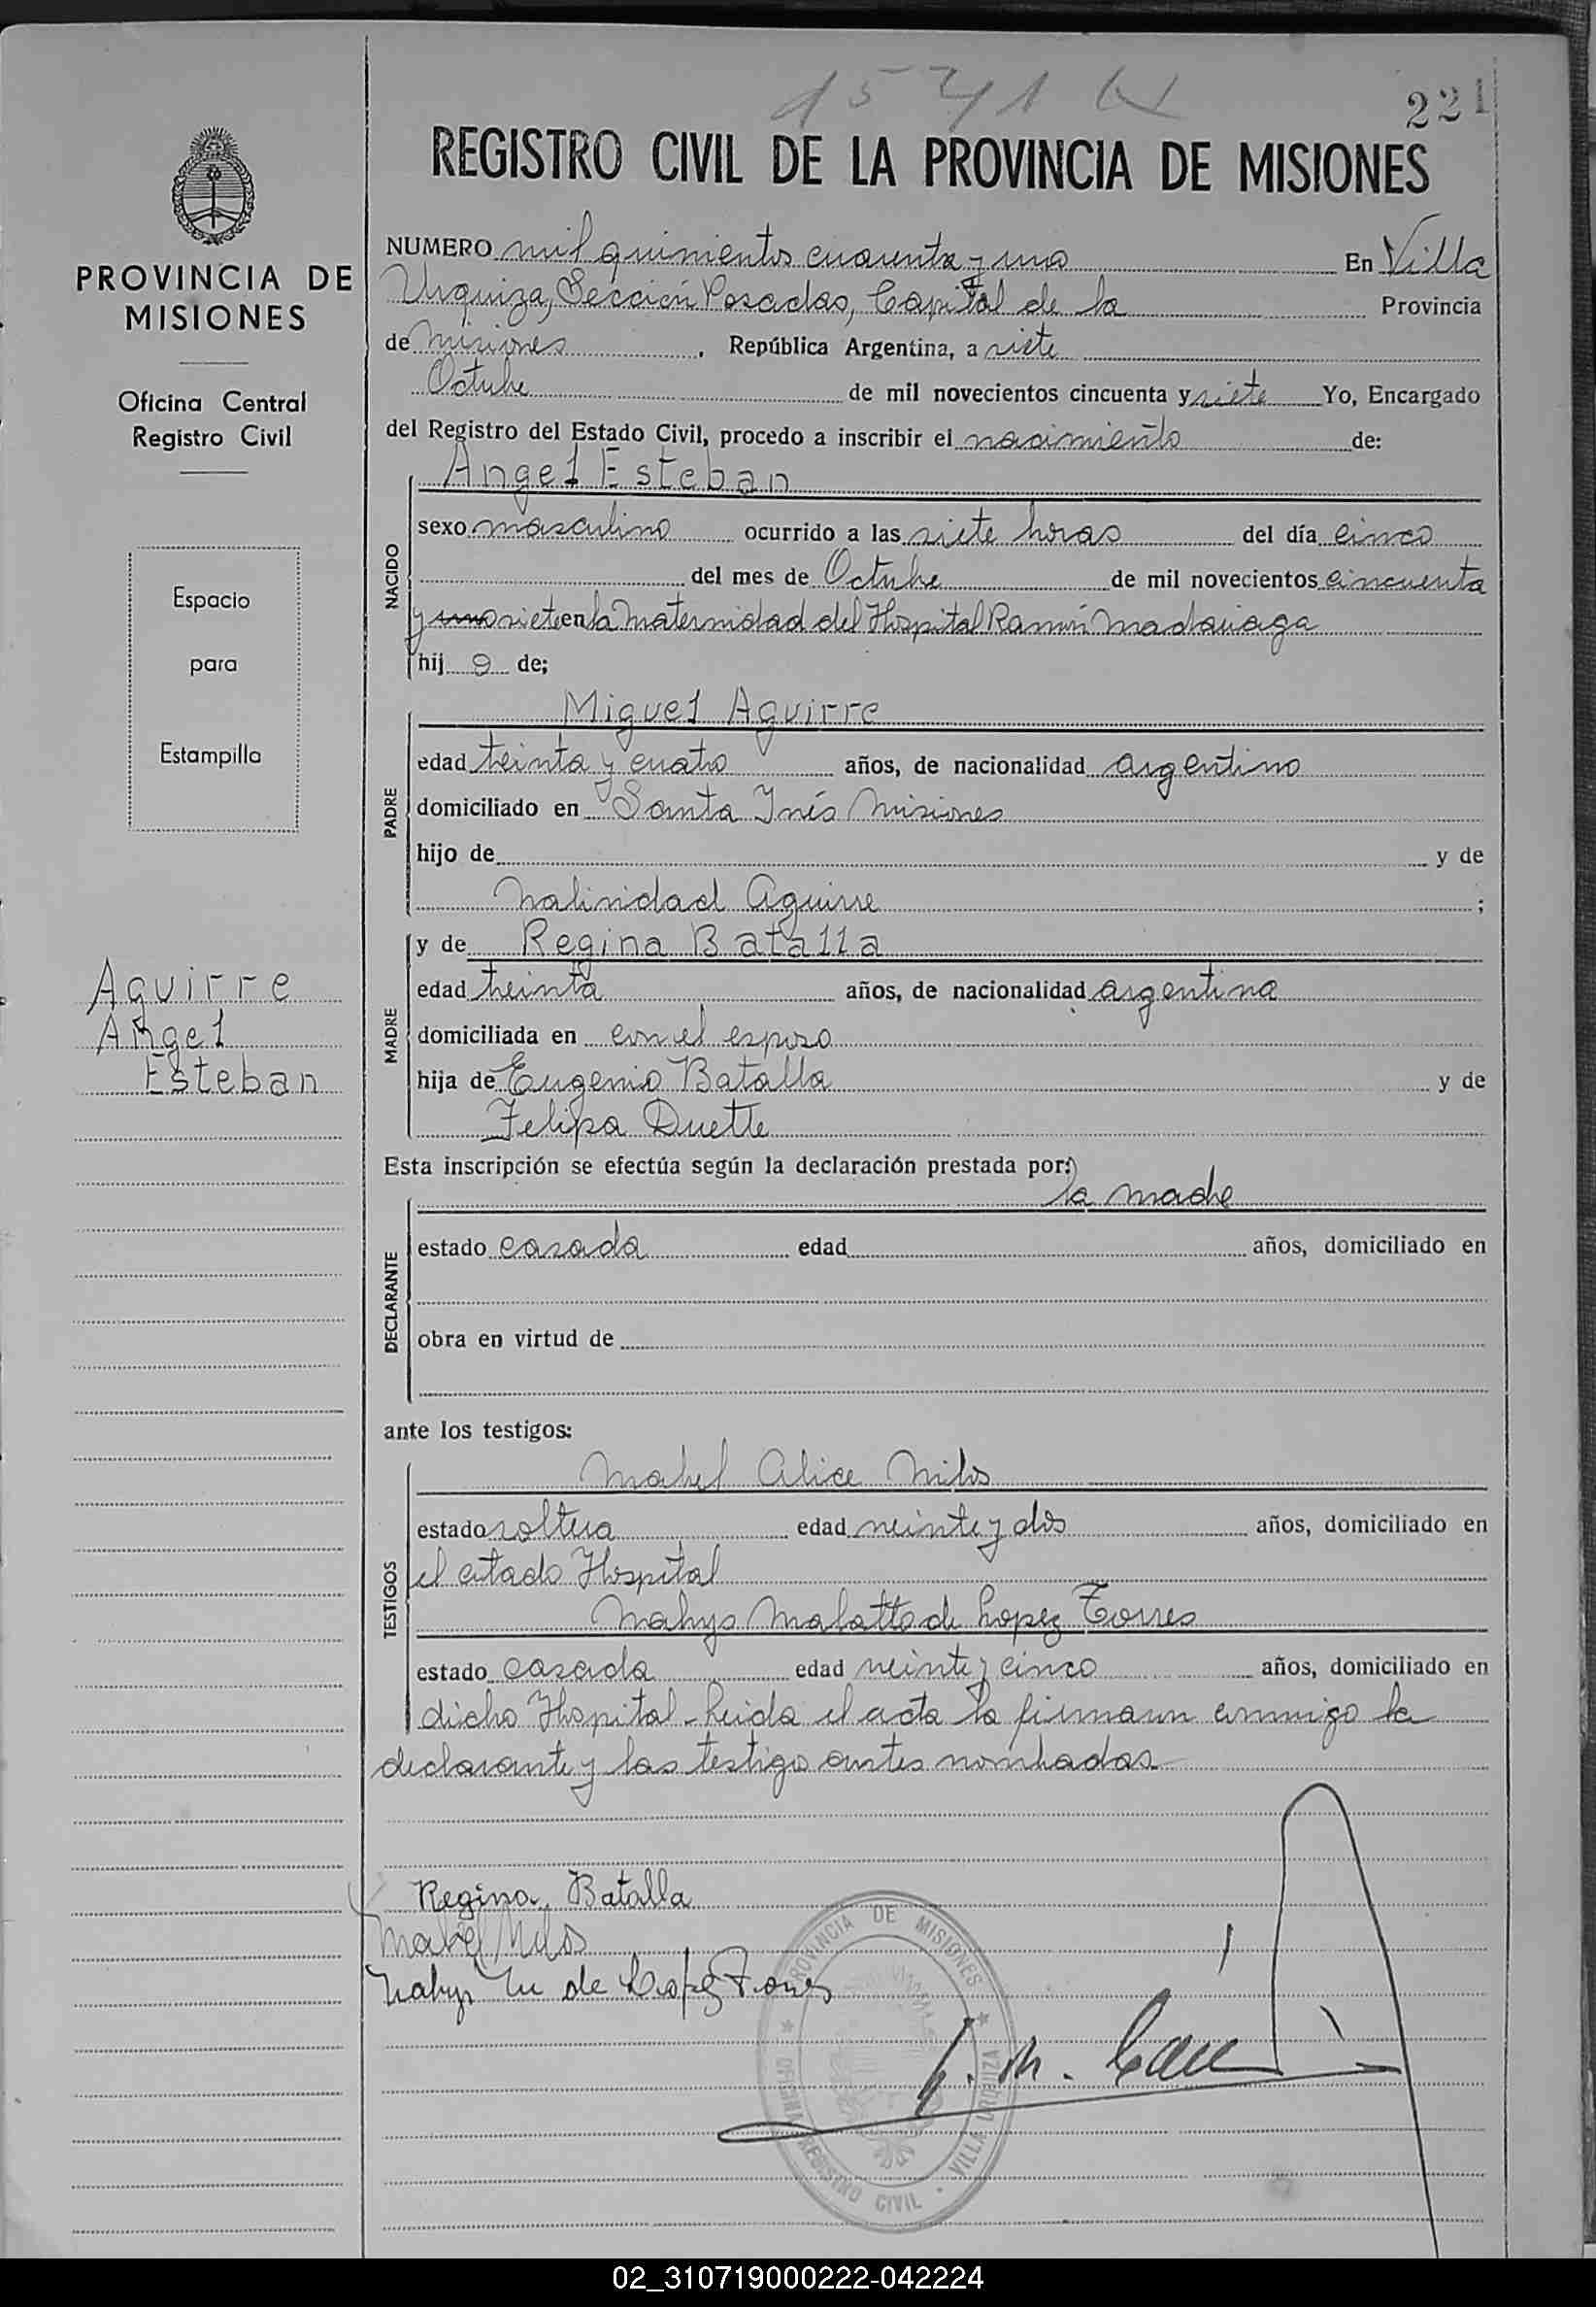 1541
221
REGISTRO CIVIL DE LA PROVINCIA DE MISIONES
PROVINCIA DE
MISIONES
Oficina Central
Registro Civil
Espacio
para
Estampilla
Aguirre
Angel
Esteban
NUMERO mil quinientos cuarenta y uno En Villa
Urquiza, Sección Posadas, Capital de la Provincia
de Misiones, República Argentina, a siete
Octubre de mil novecientos cincuenta y siete Yo, Encargado
del Registro del Estado Civil, procedo a inscribir el nacimiento de:
NACIDO
Angel Esteban
sexo masculino ocurrido a las siete horas del día cinco
del mes de Octubre de mil novecientos cincuenta
y uno siete en la Maternidad del Hospital Ramón Madariaga
hij o de;
PADRE
Miguel Aguirre
edad treinta y cuatro años, de nacionalidad argentino
domiciliado en Santa Inés Misiones
hijo de y de
Aguirre ;
MADRE
y de Regina Batalla
edad treinta años, de nacionalidad argentina
domiciliada en con el esposo
hija de Eugenio Batalla y de
Felipa Duette
Esta inscripción se efectúa según la declaración prestada por:
DECLARANTE
la madre
estado casada edad años, domiciliado en
obra en virtud de
ante los testigos:
TESTIGOS
Mabel Alice Milos
estado soltera edad veinte y dos años, domiciliado en
el citado Hospital
Malatto de Lopez Torres
estado casada edad veinte y cinco años, domiciliado en
dicho Hospital - Leida el acta la firmaron conmigo la
declarante y las testigo antes nombradas
Regina Batalla
Mabel Milos
de Lopez Torres
PROVINCIA DE MISIONES
OFICINA REGISTRO CIVIL · VILLA URQUIZA
02_310719000222-042224